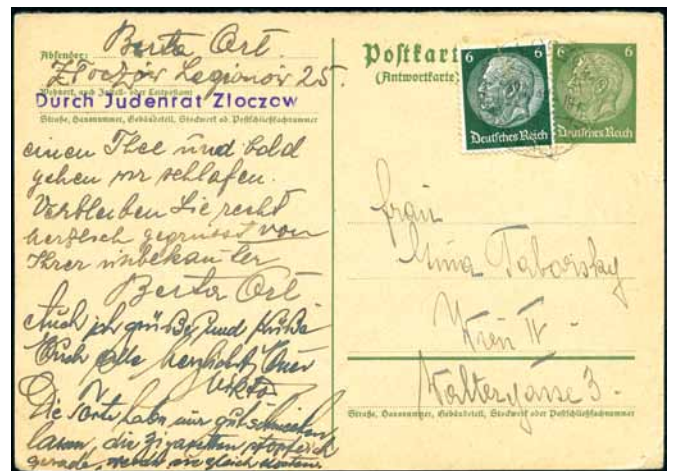 Absender: Berta Ort
Złoczów Legionów 25.
Wohnort, auch Zustell- oder Leitpostamt
Durch Judenrat Zloczow
Straße, Hausnummer, Gebäudeteil, Stockwerk od. Postschließfachnummer
einen Thee und bald
gehen wir schlafen.
Verbleiben Sie recht
herzlich gegrüsst von
Ihrer unbekannter
Berta Ort
Auch ich grüße und küße
Euch alle herzlichst Euer
Viktor
Die Torte habe mir gut schmecken
lassen, die Zigaretten
gerade, gleich
Postkarte
(Antwortkarte)
6 6
Deutsches Reich
6 6
Deutsches Reich
Frau
Mina Taborsky
Wien II -
Waltergasse 3.
Straße, Hausnummer, Gebäudeteil, Stockwerk oder Postschließfachnummer